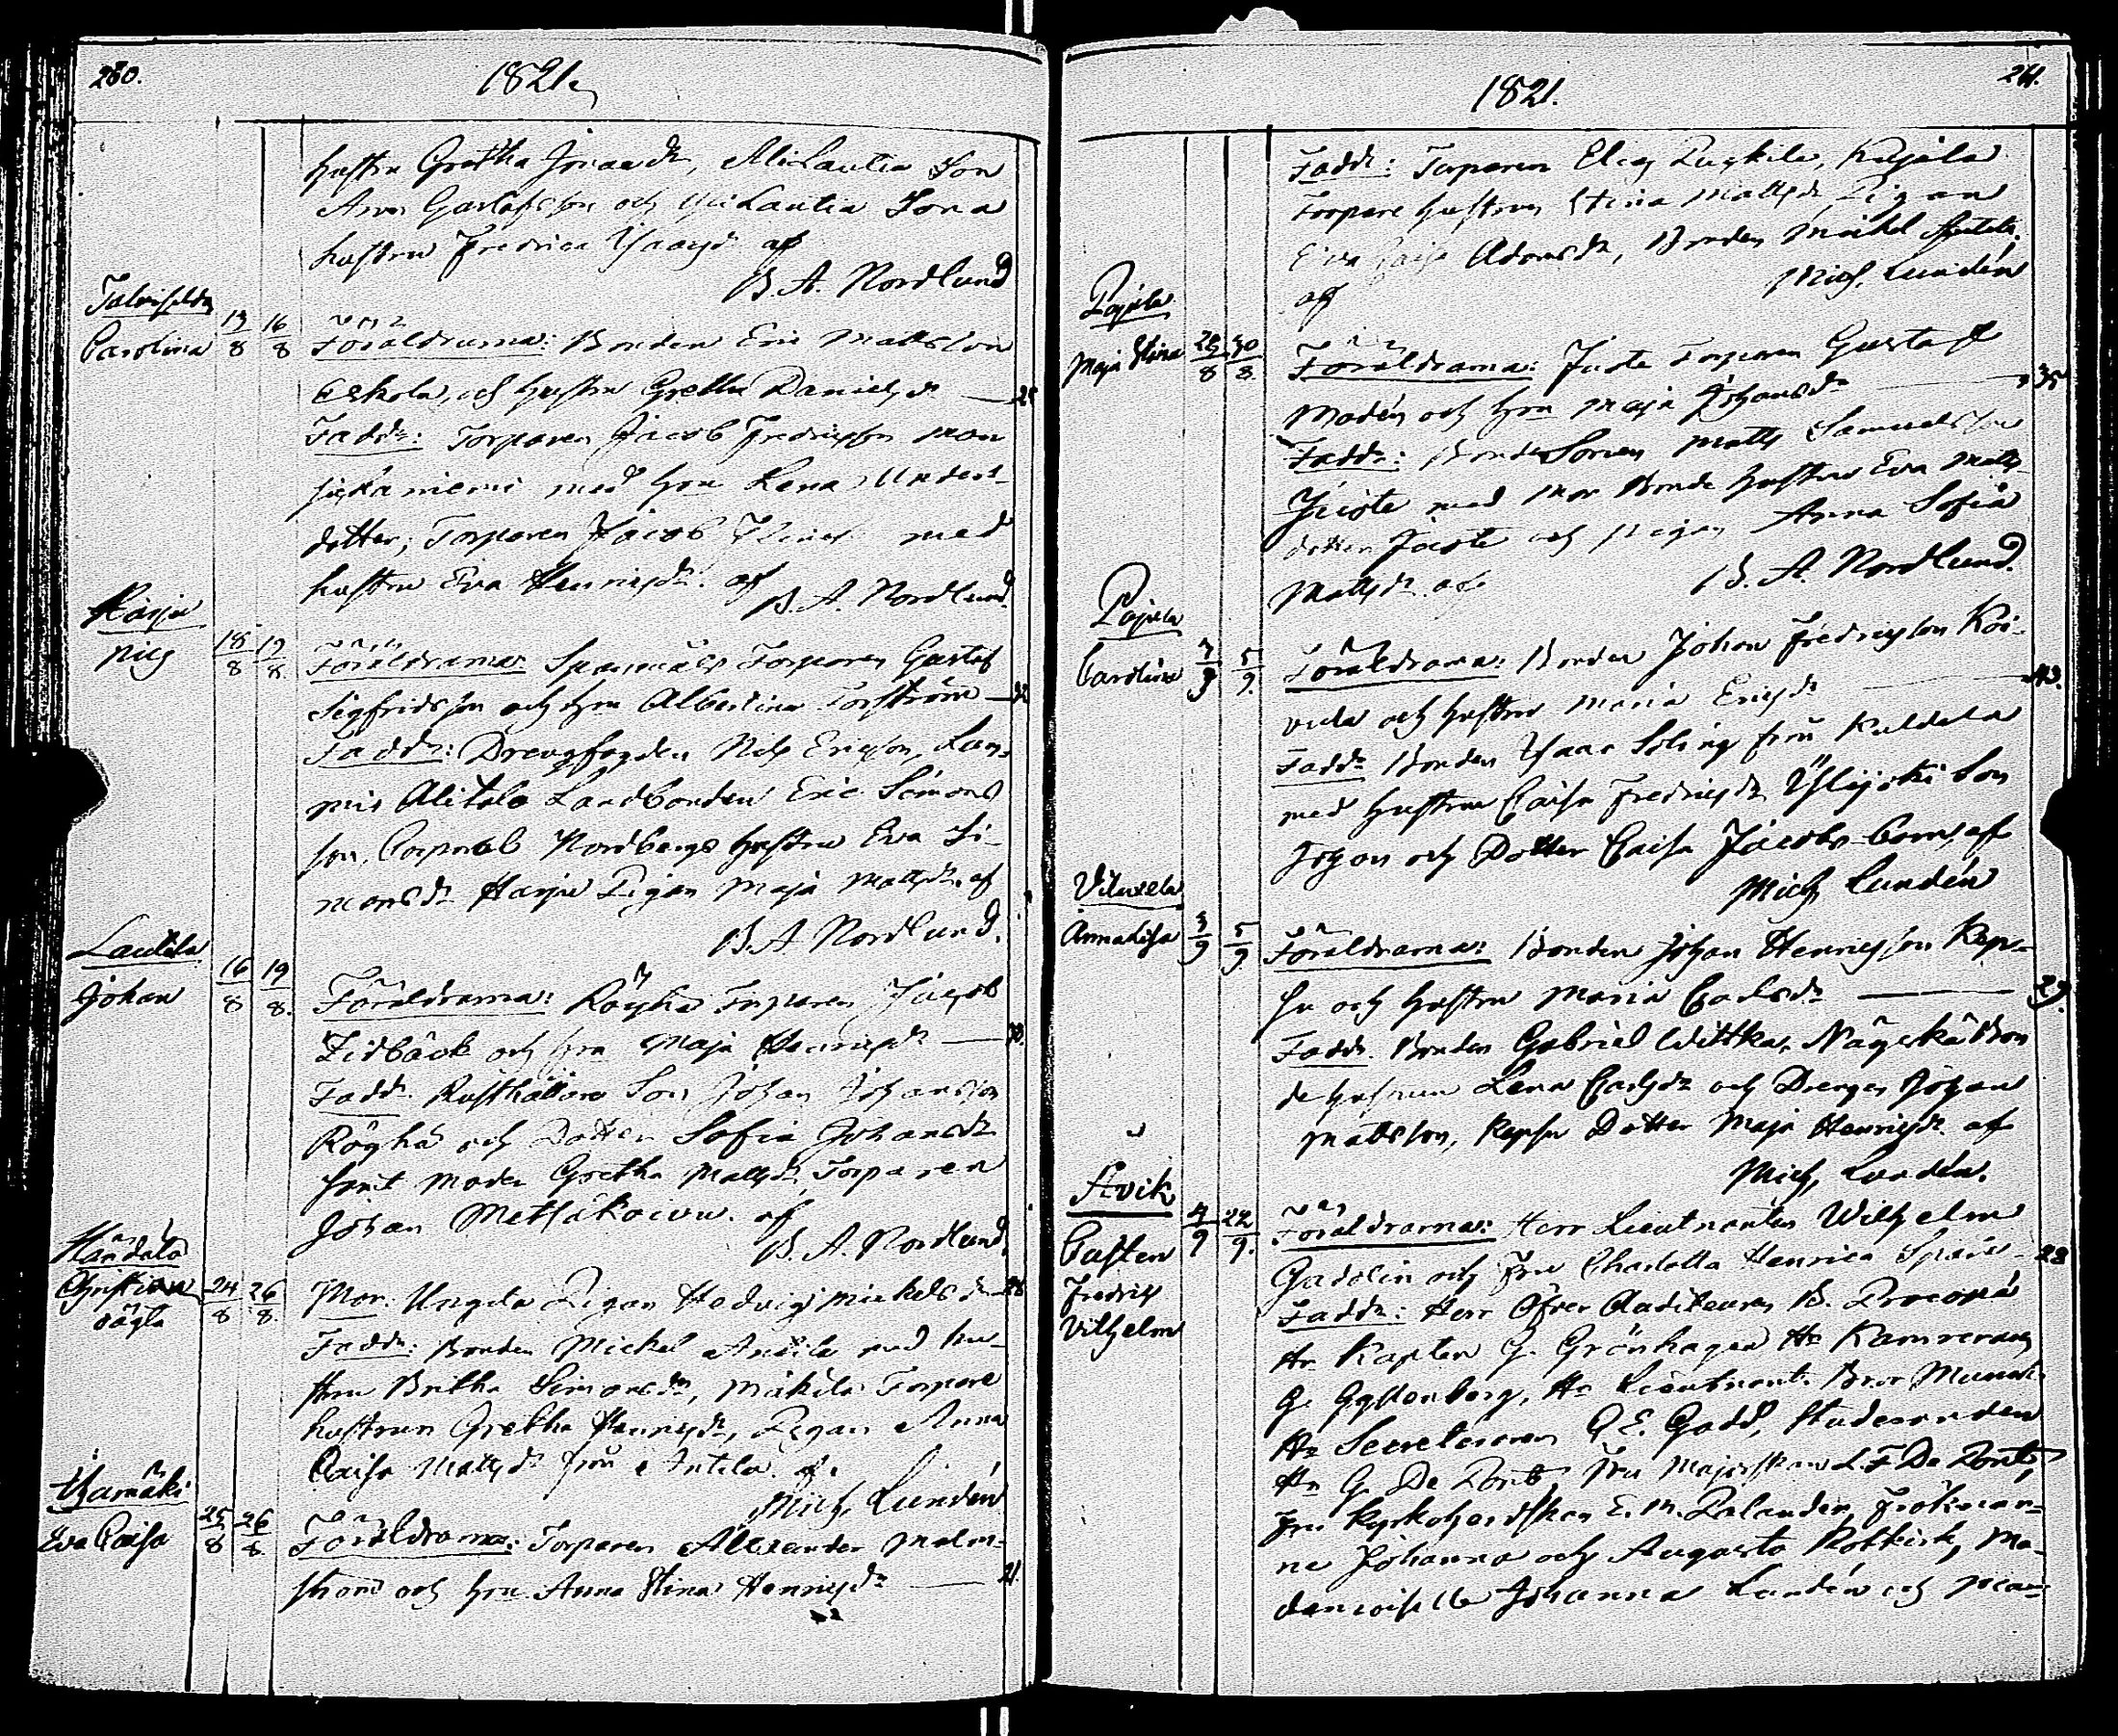 280.
1821.
hustru Gretha Jsaacsdr, Alilautia Son
Arvi Gustafsson och Alilautia Sona
hustru Fredrica Jsaacsdr af
B. A. Nordlund
Carolina 13/8 16/8
Föräldrarna: Bonden Eric Mattsson
Eskola, och hustru Gretha Danielsdr — 28
Faddr: Torparen Jacob Fredricsson
niemi med hru Lena Anders-
dotter, Torparen Jacob med
hustru Eva Henricsdr. af
B. A. Nordlund.
Harju
Nils 18/8 19/8.
Föräldrarna: Torparen Gustaf
Sigfridsson och hru Albertina Torström — 32
Faddr: Drengfogden Nils Ericsson, Lam-
mis Alitalo Landbonden Eric Simons
son, Corporal Nordbergs hustru Eva Si-
monsdr Harju Pigan Maja Mattsdr. af
B. A. Nordlund.
Lautela
Johan 16/8 19/8.
Föräldrarna: Röyhä Torparen Jacob
Lidbäck och hru Maja Henricsdr — 38.
Faddr. Rusthållare Son Johan Johansson
Röyhä och Dotter Sofia Johansdr
samt Moder Gretha Mattsdr, Torparen
Johan Metsäkoivu. af
B. A. Nordlund.
Händälä
Christian
oägta 24/8 26/8.
Mor. Ungela Pigan Hedvig Mickelsdr 28
Faddr: Bonden Mickel Anttila med hu-
stru Britha Simonsdr, Mäkilä Torpare
hustrun Gretha Henricsdr, Pigan Anna
Caisa Mattsdr från Antila. af.
Mich. Lundén
Eva Caisa 25/8 26/8.
Föräldrarna: Torparen Alexander Malm-
ström och hru Anna Stina Henricsdr — 21.
1821.
281.
Faddr: Torparen Elias, Pajula
Torpare hustrun Stina Mattsdr Pigan
Eva Caisa Adamsdr, Bonden Mickel
af Mich. Lundén
Pajula
Maja Stina 28/8 30/8.
Föräldrarna: Juste Torparen Gustaf
Modén och hru Maja Johansdr — 35
Faddr: Bonde Sonen Matts Samuelsson
Juste med Mor Bonde hustru Eva Matts
dotter Juste och Pigan Anna Sofia
Mattsdr. af B. A. Nordlund.
Pajula
Carolina 3/9 5/9.
Föräldrarna: Bonden Johan Fredricsson Koi-
vula och hustru Maria Ericsdr — 43.
Faddr Bonden Isaac Soling från Kuldala
med hustrun Caisa Fredricsdr Son
Johan och Dotter Caisa Jacobs barn, af
Mich. Lundén
Viluxela
Anna Lisa 3/9 5/9.
Föräldrarna: Bonden Johan Henricsson Kep-
su och hustru Maria Carlsdr — 29.
Faddr. Bonden Gabriel Wittka, Näyrkä Bon
de hustrun Lena Carlsdr och Drengen Johan
Mattsson, Kepsu Dotter Maja Henricsdr. af
Mich. Lundén.
Åvik
Casten
Fredric
Vilhelm 4/9 22/9.
Föräldrarna: Herr Lieutnanten Wilhelm
Gadolin och Fru Charlotta Henrica Spåre — 28
Faddr: Herr Öfver Auditeuren B. Procopé
Hr Kapten G. Grönhagen Hr Kamreraren
G. Gyllenberg, Hr Lieutnant. Bror Munck
Hr Secreteraren G. E. Gadd, Studeranden
Hr G. De Pont, Fru Majorskan L. F. De Pont,
Fru Kyrkoherdskan E. M. Polander, Fröknar-
ne Johanna och Augusta Rotkirk, Ma-
damoiselle Johanna Lundén och Mam-